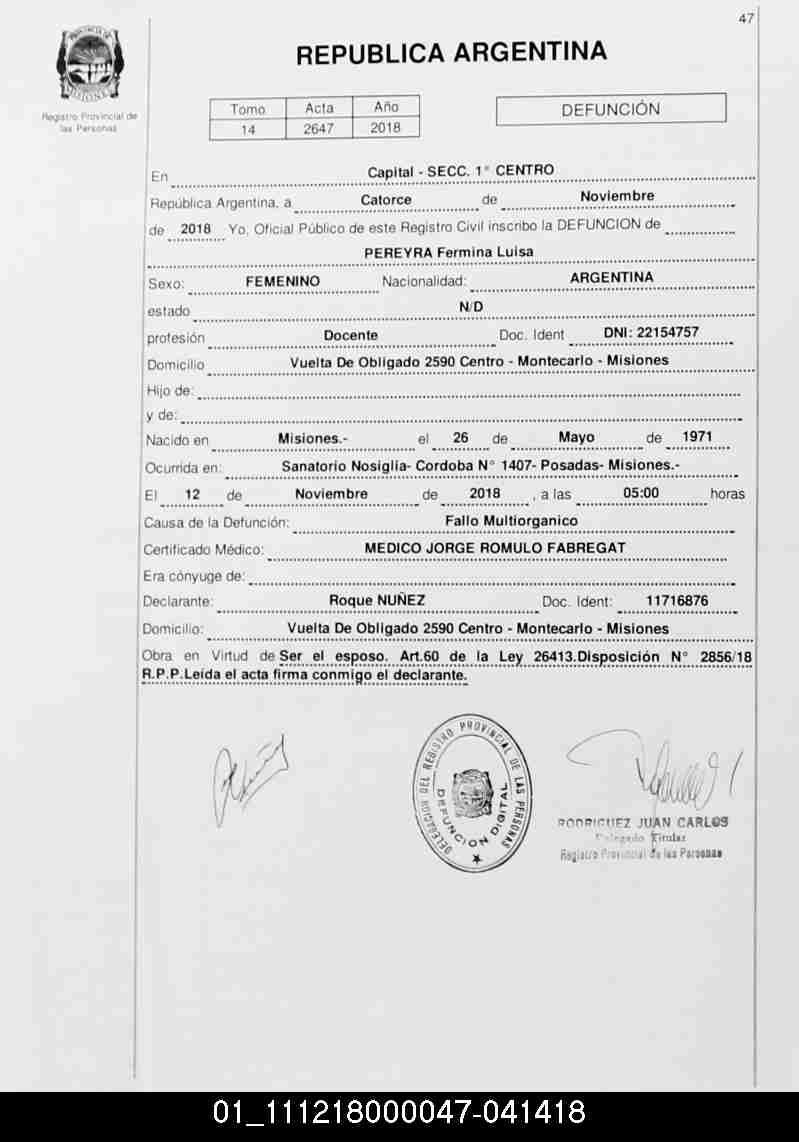 47
PROVINCIA DE
MISIONES
Registro Provincial de
las Personas
REPUBLICA ARGENTINA
Tomo Acta Año
14 2647 2018
DEFUNCIÓN
En Capital - SECC. 1° CENTRO
República Argentina, a Catorce de Noviembre
de 2018 Yo, Oficial Público de este Registro Civil inscribo la DEFUNCION de
PEREYRA Fermina Luisa
Sexo: FEMENINO Nacionalidad: ARGENTINA
estado N/D
profesión Docente Doc. Ident DNI: 22154757
Domicilio Vuelta De Obligado 2590 Centro - Montecarlo - Misiones
Hijo de:
y de:
Nacido en Misiones.- el 26 de Mayo de 1971
Ocurrida en: Sanatorio Nosiglia- Cordoba N° 1407- Posadas- Misiones.-
El 12 de Noviembre de 2018 , a las 05:00 horas
Causa de la Defunción: Fallo Multiorganico
Certificado Médico: MEDICO JORGE ROMULO FABREGAT
Era cónyuge de:
Declarante: Roque NUÑEZ Doc. Ident: 11716876
Domicilio: Vuelta De Obligado 2590 Centro - Montecarlo - Misiones
Obra en Virtud de Ser el esposo. Art.60 de la Ley 26413.Disposición N° 2856/18
R.P.P.Leída el acta firma conmigo el declarante.
DELEGACION DEL REGISTRO PROVINCIAL DE LAS PERSONAS
DEFUNCION DIGITAL
RODRIGUEZ JUAN CARLOS
Delegado Titular
Registro Provincial de las Personas
01_111218000047-041418